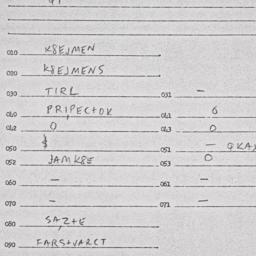 010 K8EJMEN
020 K8EJMENS
030 TIRL 031 —
040 PRIPECTOK 041 6
042 0 043 0
050 $ 051 —
052 JAMK8E 053 0
060 — 061 —
070 — 071 —
080 SAZTE
090 FARSTVARCT